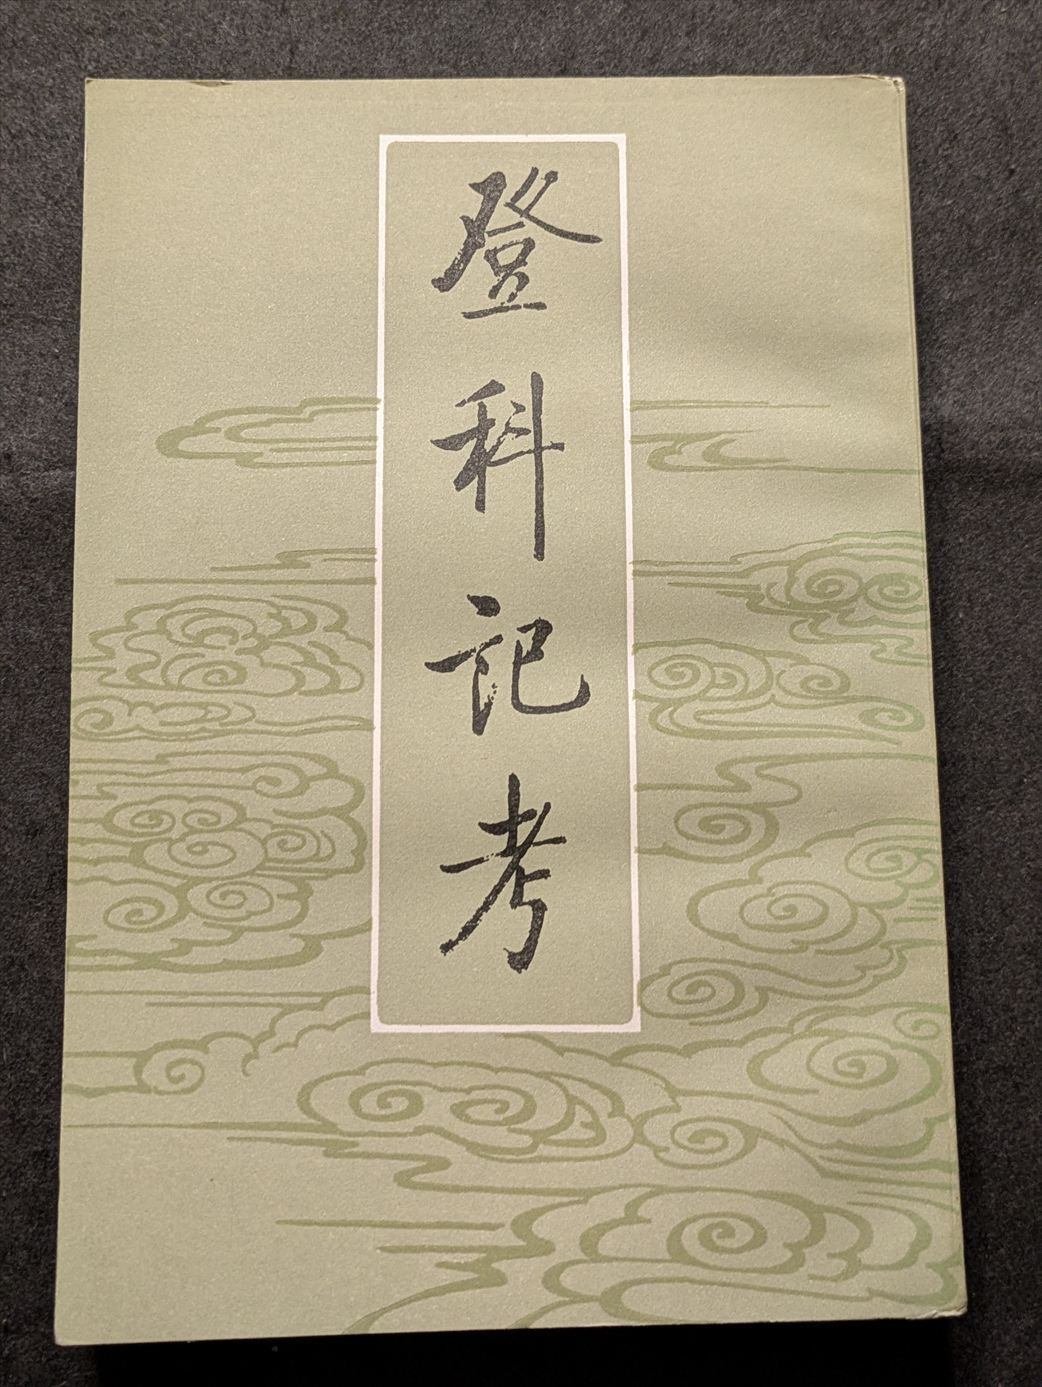 登科記考